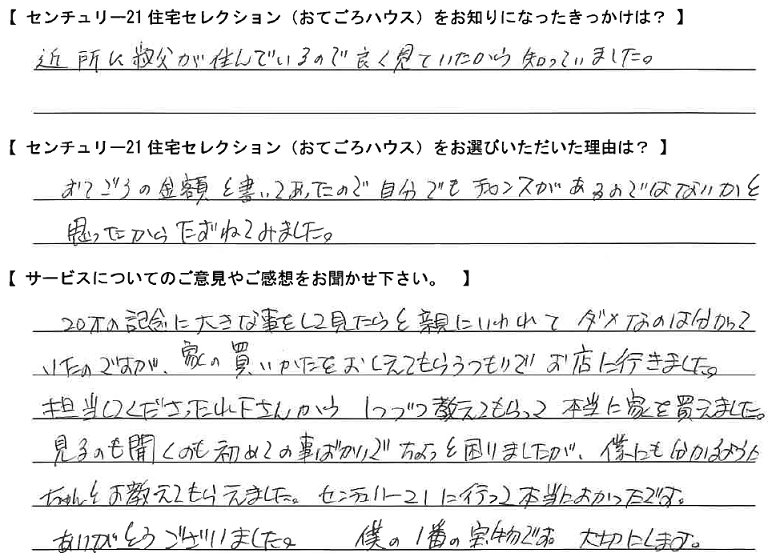 【 センチュリー21住宅セレクション（おてごろハウス）をお知りになったきっかけは？ 】
近所に叔父が住んでいるので良く見ていたから知っていました。
【 センチュリー21住宅セレクション（おてごろハウス）をお選びいただいた理由は？ 】
おてごろの金額を書いてあったので自分でもチャンスがあるのではないかと
思ったからたずねてみました。
【 サービスについてのご意見やご感想をお聞かせ下さい。 】
20才の記念に大きな事をして見たらと親にいわれて ダメなのは分かって
いたのですが、家の買いかたをおしえてもらうつもりで お店に行きました。
担当してくださった山下さんから 1つづつ教えてもらって 本当に家を買えました。
見るのも聞くのも初めての事ばかりで ちょっと困りましたが、僕にも分かるように
ちゃんとお教えてもらえました。センチュリー21に行って本当によかったです。
ありがとうございました。 僕の1番の宝物です。大切にします。